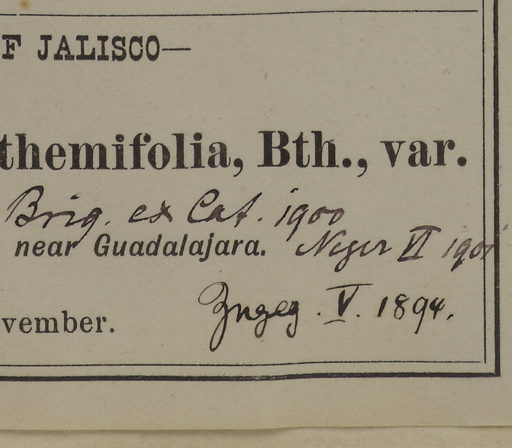 F JALISCO—
themifolia, Bth., var.
Brig. ex Cat. 1900
near Guadalajara. VI 190
vember. V. 1894.